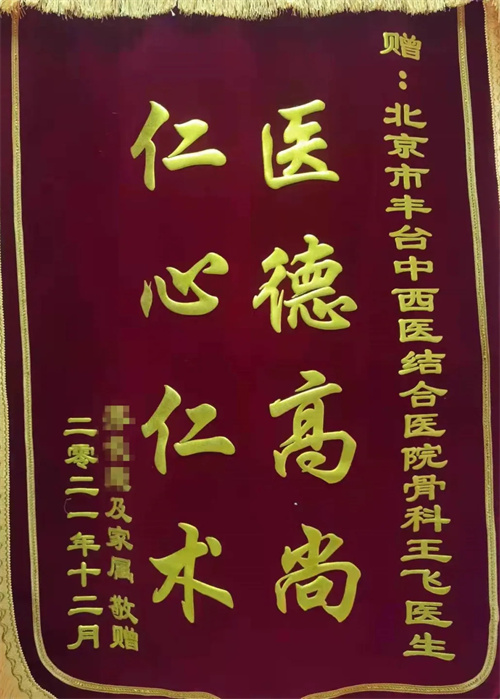 赠：北京市丰台中西医结合医院骨科王飞医生
医德高尚
仁心仁术
及家属 敬赠
二零二一年十二月